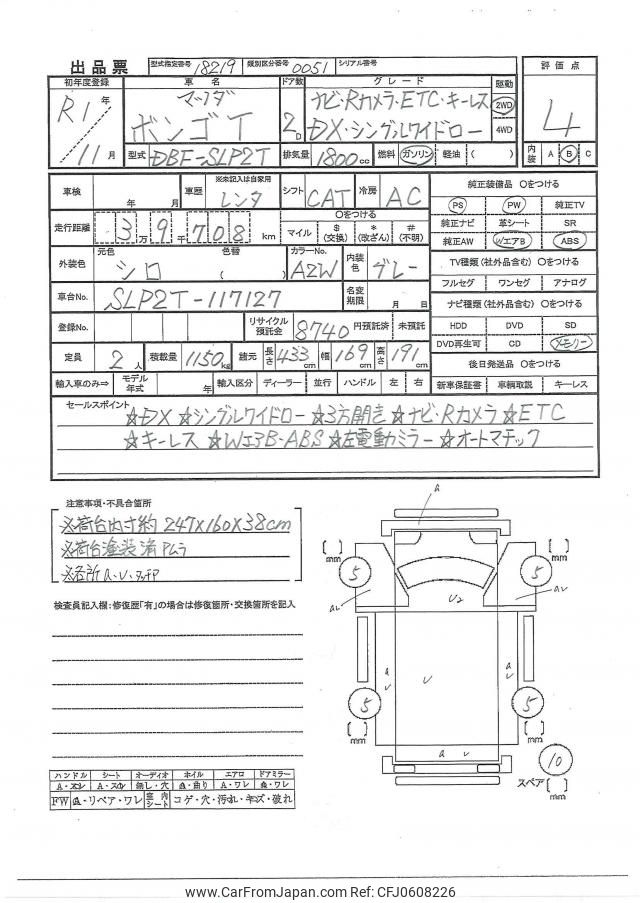 出品票 型式指定番号 18219 類別区分番号 0051 シリアル番号
初年度登録 車名 ドア数 グレード 駆動 評価点
R1年 マツダ ナビ・Rカメラ・ETC・キーレス 2WD 4
11月 ボンゴT 2D DX・シングルワイドロー 4WD
型式 DBF-SLP2T 排気量 1800cc 燃料 ガソリン・軽油・( ) 内装 A B C
車検 年 月 車歴 ※未記入は自家用 レンタ シフト CAT 冷房 AC 純正装備品 〇をつける
走行距離 3万9千708km 〇をつける PS PW 純正TV
マイル $(交換) *(改ざん) #(不明) 純正ナビ 革シート SR
純正AW WエアB ABS
外装色 元色 シロ 色替 ( ) カラーNo. A2W 内装色 グレー TV種類(社外品含む) 〇をつける
フルセグ ワンセグ アナログ
車台No. SLP2T-117127 名変期限 月 日 ナビ種類(社外品含む) 〇をつける
登録No. リサイクル預託金 8740 円預託済 未預託 HDD DVD SD
DVD再生可 CD メモリー
定員 2人 積載量 1150kg 諸元 長さ 433cm 幅 169cm 高さ 191cm 後日発送品 〇をつける
輸入車のみ⇨ モデル年式 年 輸入区分 ディーラー・並行 ハンドル 左・右 新車保証書 車輌取説 キーレス
セールスポイント
☆DX ☆シングルワイドロー ☆3方開き ☆ナビ・Rカメラ ☆ETC
☆キーレス ☆WエアB・ABS ☆左電動ミラー ☆オートマチック
注意事項・不具合箇所
※荷台内寸約247×160×38cm
※荷台塗装済ムラ
※各所A・U・タッチP
検査員記入欄:修復歴「有」の場合は修復箇所・交換箇所を記入
a
[ ] mm
[ ] mm
5
5
au
au
U2
a
U
U
a
U
5
5
[ ] mm
[ ] mm
a U
10
スペア [ ] mm
ハンドル シート オーディオ ホイル エアロ ドアミラー
A・スレ A・スレ 無し・穴 A・曲り A・ワレ A・ワレ
FW A・リペア・ワレ 室内シート コゲ・穴・汚れ・キズ・破れ
www.CarFromJapan.com Ref: CFJ0608226